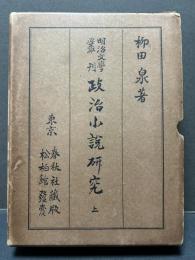 柳田泉著
明治文學叢刊
政治小說研究 上
東京 春秋社藏版
松柏館發賣